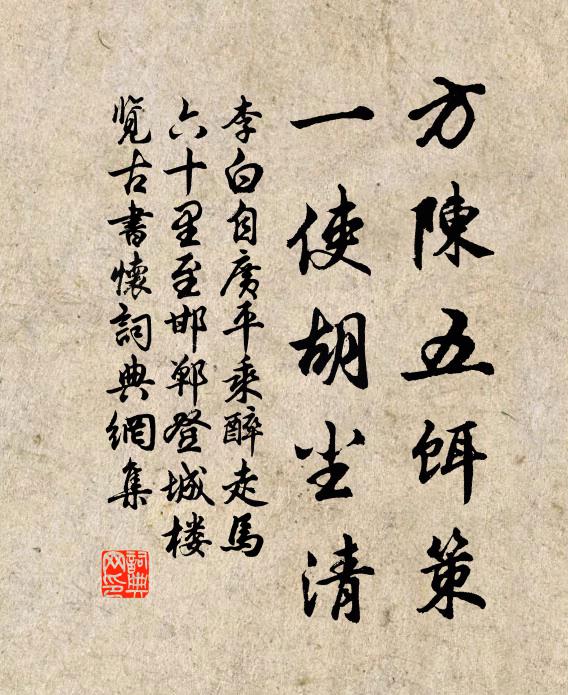 方陳五餌策
一使胡尘清
李白自廣平乘醉走馬
六十里至邯鄲登城楼
覽古書懷詞典網集
詞典网印